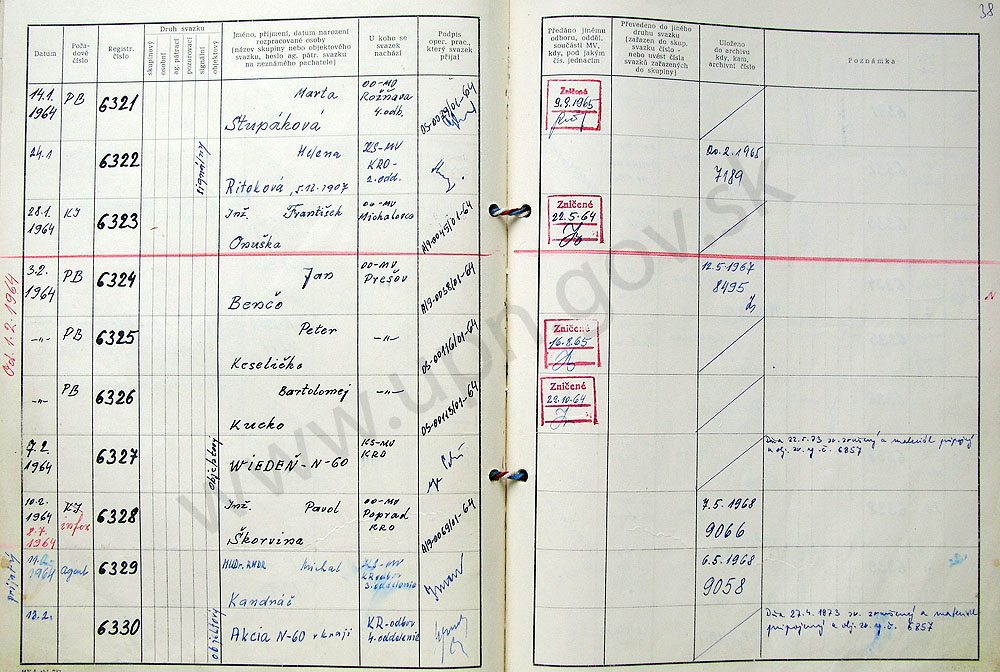 38
Datum
Pořadové číslo
Registr. číslo
Druh svazku
skupinový
osobní
ag. pátrací
pozorovací
signální
objektový
Jméno, příjmení, datum narození
rozpracované osoby
(název skupiny nebo objektového
svazku, heslo ag. pátr. svazku
na neznámého pachatele)
U koho se
svazek
nachází
Podpis
oper. prac.,
který svazek
přijal
Předáno jinému
odboru, odděl.
součásti MV,
kdy, pod jakým
čís. jednacím
Převedeno do jiného
druhu svazku
(zařazen do skup.
svazku číslo -
nebo uvést čísla
svazků zařazených
do skupiny)
Uloženo
do archivu
kdy, kam,
archivní číslo
Poznámka
14.1. 1964 PB 6321 Marta Stupáková OO-MV Rožňava 4.odb. 05-0029/01-64
Zničené 9.9.1965
24.1 6322 signálny Helena Ritoková, 5.12.1907 KS-MV KRO- 2.odd.
20.2.1965 7189
28.1. 1964 KJ 6323 Inž. František Onuška OO-MV Michalovce A/9-0045/01-64
Zničené 22.5.64
Od. 1.2.1964
3.2. 1964 PB 6324 Jan Benčo OO-MV Prešov A/9-0058/01-64
12.5.1967 8495
N
-"- PB 6325 Peter Keseličko -"- 05-00116/01-64
Zničené 16.8.65
-"- PB 6326 Bartolomej Kucko -"- 05-00113/01-64
Zničené 22.10.64
7.2. 1964 6327 objektový WIEDEŇ - N-60 KS-MV KRO
Dňa 22.5.73 sv. zrušený a materiál pripojený
k obj. sv. r. č. 6857
10.2. 1964 8.7. 1964 KJ infor 6328 Inž. Pavol Škorvina OO-MV Poprad KRO A/9-0069/01-64
7.5.1968 9066
prijatý
11.2. 1964 agent 6329 MUDr. RNDR Michal Kandráč KS-MV KR odbor 3.oddelenie
6.5.1968 9058
13.2. 6330 objektový Akcia N-60 v kraji KR-odbor 4.oddelenie
Dňa 27.4.1973 sv. zrušený a materiál
pripojený k obj. sv. r. č. 6857
www.upn.gov.sk